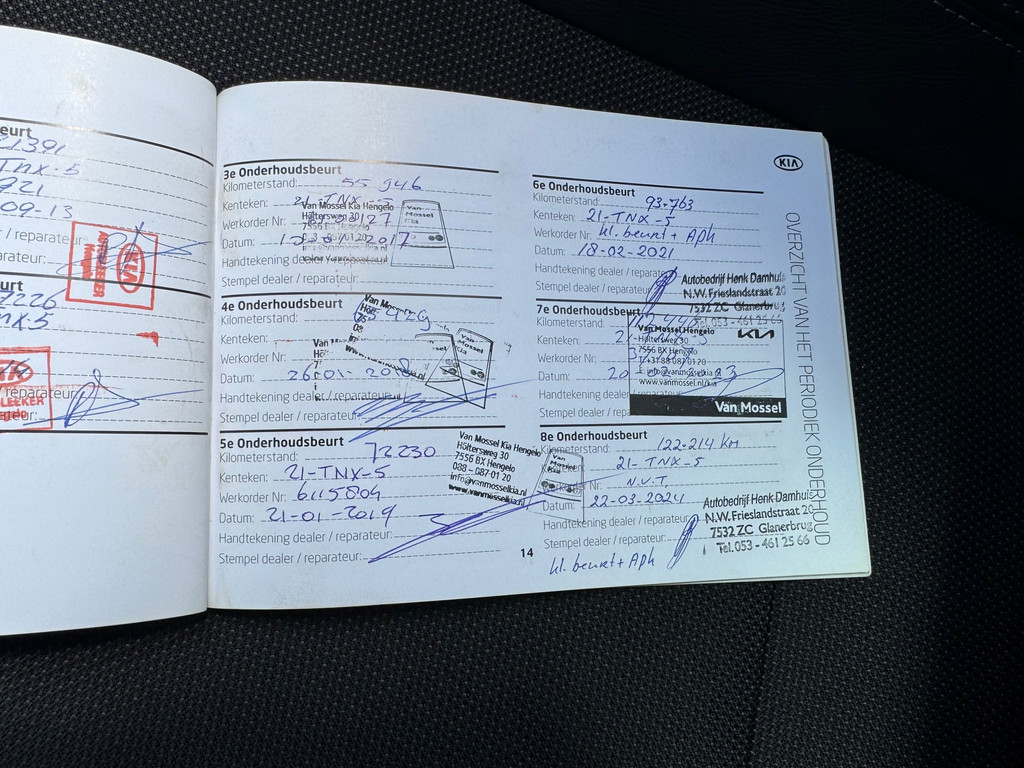 eurt
21391
TNX-5
09-13
reparateur:
paraateur:
KIA
urt
reparateur:
ateur:
3e Onderhoudsbeurt
Kilometerstand: 55 946
Kenteken:
Werkorder Nr:
Datum: 2017
Handtekening dealer / reparateur:
Stempel dealer / reparateur:
Van Mossel Kia Hengelo
Höltersweg 30
7556 BX Hengelo
www.vanmosselkia.nl
Van Mossel Kia
4e Onderhoudsbeurt
Kilometerstand:
Kenteken:
Werkorder Nr:
Datum: 26-01-2018
Handtekening dealer / reparateur:
Stempel dealer / reparateur:
Van Mossel Kia
5e Onderhoudsbeurt
Kilometerstand: 72230
Kenteken: 21-TNX-5
Werkorder Nr: 6115804
Datum: 21-01-2019
Handtekening dealer / reparateur:
Stempel dealer / reparateur:
Van Mossel Kia Hengelo
Höltersweg 30
7556 BX Hengelo
088 - 087 01 20
info@vanmosselkia.nl
www.vanmosselkia.nl
Van Mossel Kia
14
KIA
6e Onderhoudsbeurt
Kilometerstand: 93.763
Kenteken: 21-TNX-5
Werkorder Nr: kl. beurt + Apk
Datum: 18-02-2021
Handtekening dealer / reparateur:
Stempel dealer / reparateur:
Autobedrijf Henk Damhuis
N.W. Frieslandstraat 20
7532 ZC Glanerbrug
Tel.053 - 461 25 66
7e Onderhoudsbeurt
Kilometerstand:
Kenteken:
Werkorder Nr:
Datum:
Handtekening
Stempel dealer / rep
Van Mossel Hengelo
Höltersweg 30
7556 BX Hengelo
T. +31 88 087 01 20
info@vanmosselkia
www.vanmossel.nl/kia
KIA
Van Mossel
8e Onderhoudsbeurt
Kilometerstand: 122.214 km
21-TNX-5
N.V.T.
22-03-2024
Handtekening dealer / reparateur:
Stempel dealer / reparateur:
kl. beurt + Apk
Autobedrijf Henk Damhuis
N.W. Frieslandstraat 20
7532 ZC Glanerbrug
Tel.053 - 461 25 66
OVERZICHT VAN HET PERIODIEK ONDERHOUD